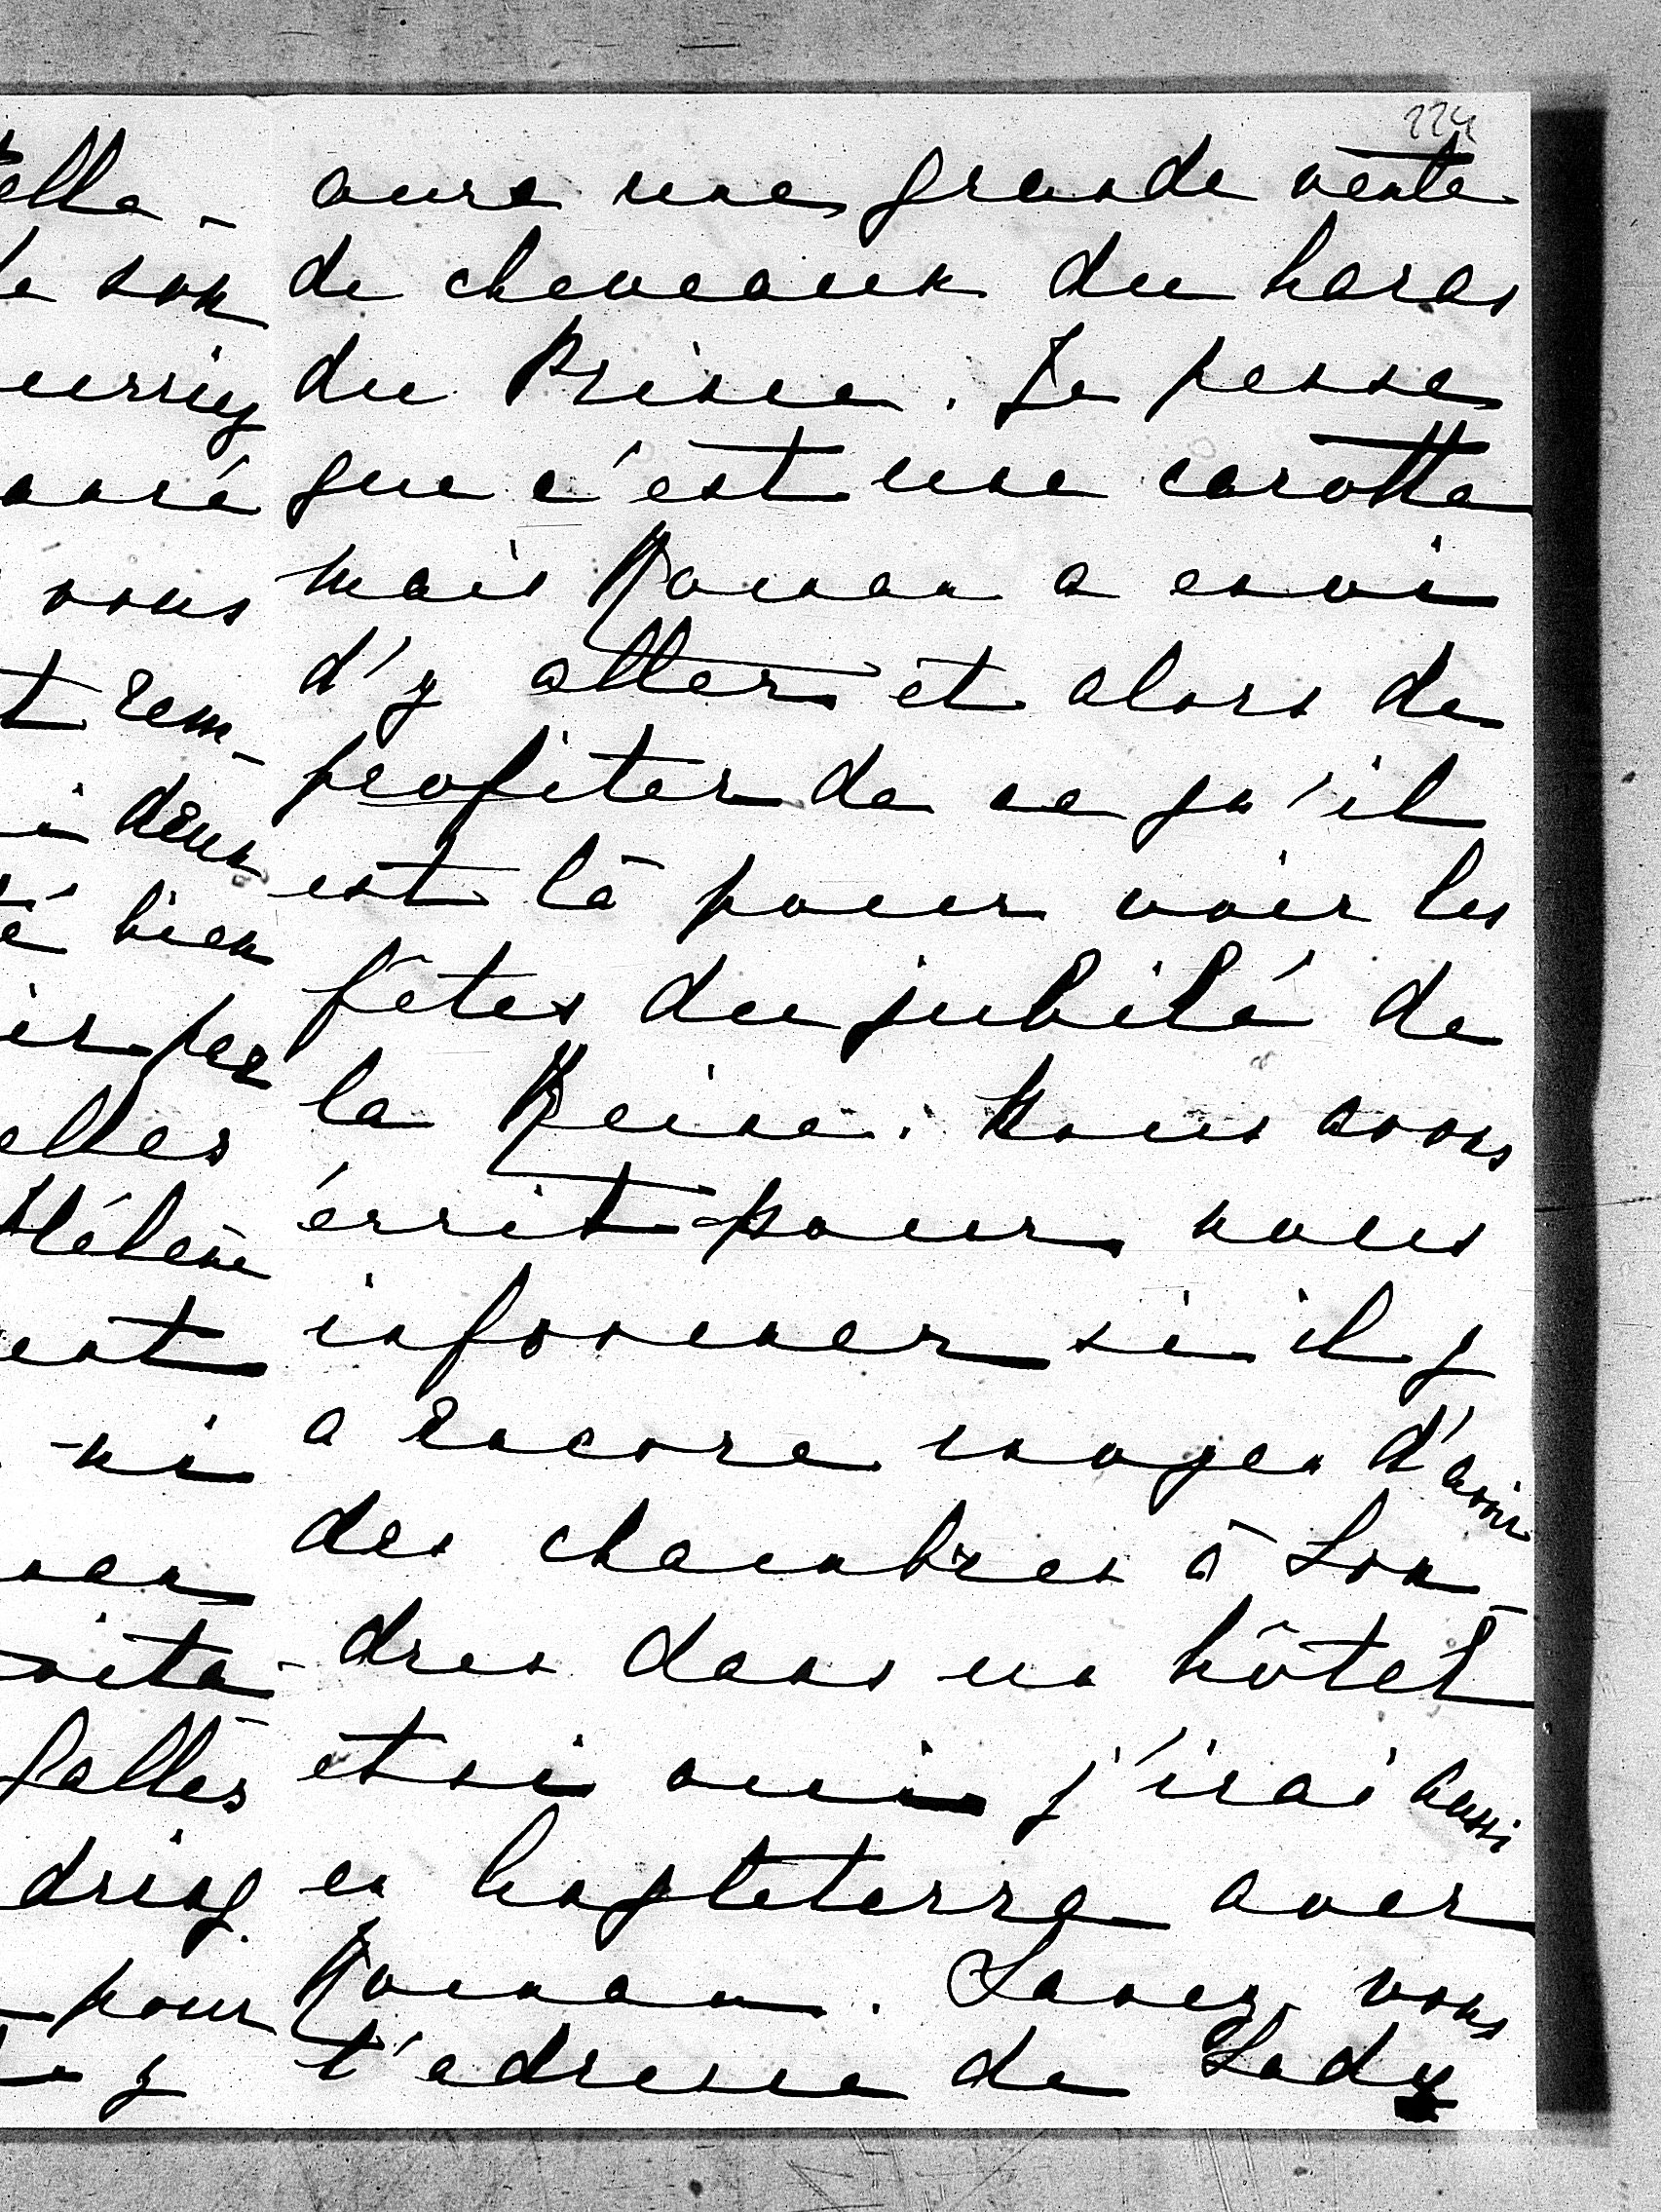 224
son
vous
rem-
deux
bien
elles
Hélène
ni
pour
y
aura une grande vente
de cheveaux du haras
du Prince. Je pense
que c'est une carotte
mais Roman a envi
d'y aller et alors de
profiter de ce qu'il
est là pour voir les
fêtes du jubilé de
la Reine. Nous avons
écrit pour nous
informer si il y
a encore moyen d'avoir
des chambres à Lon-
dres dans un hôtel
et si oui j'irai aussi
en Angleterre avec
Roman. Savez vous
l'adresse de Lady